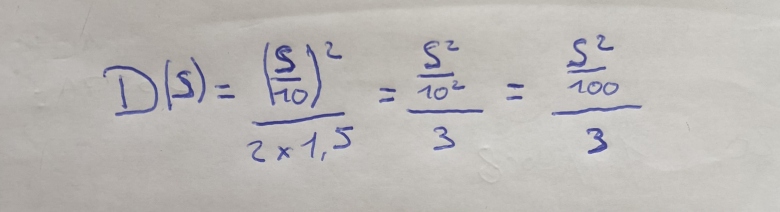 D(S) = (S/10)² / 2×1,5 = S²/10² / 3 = S²/100 / 3